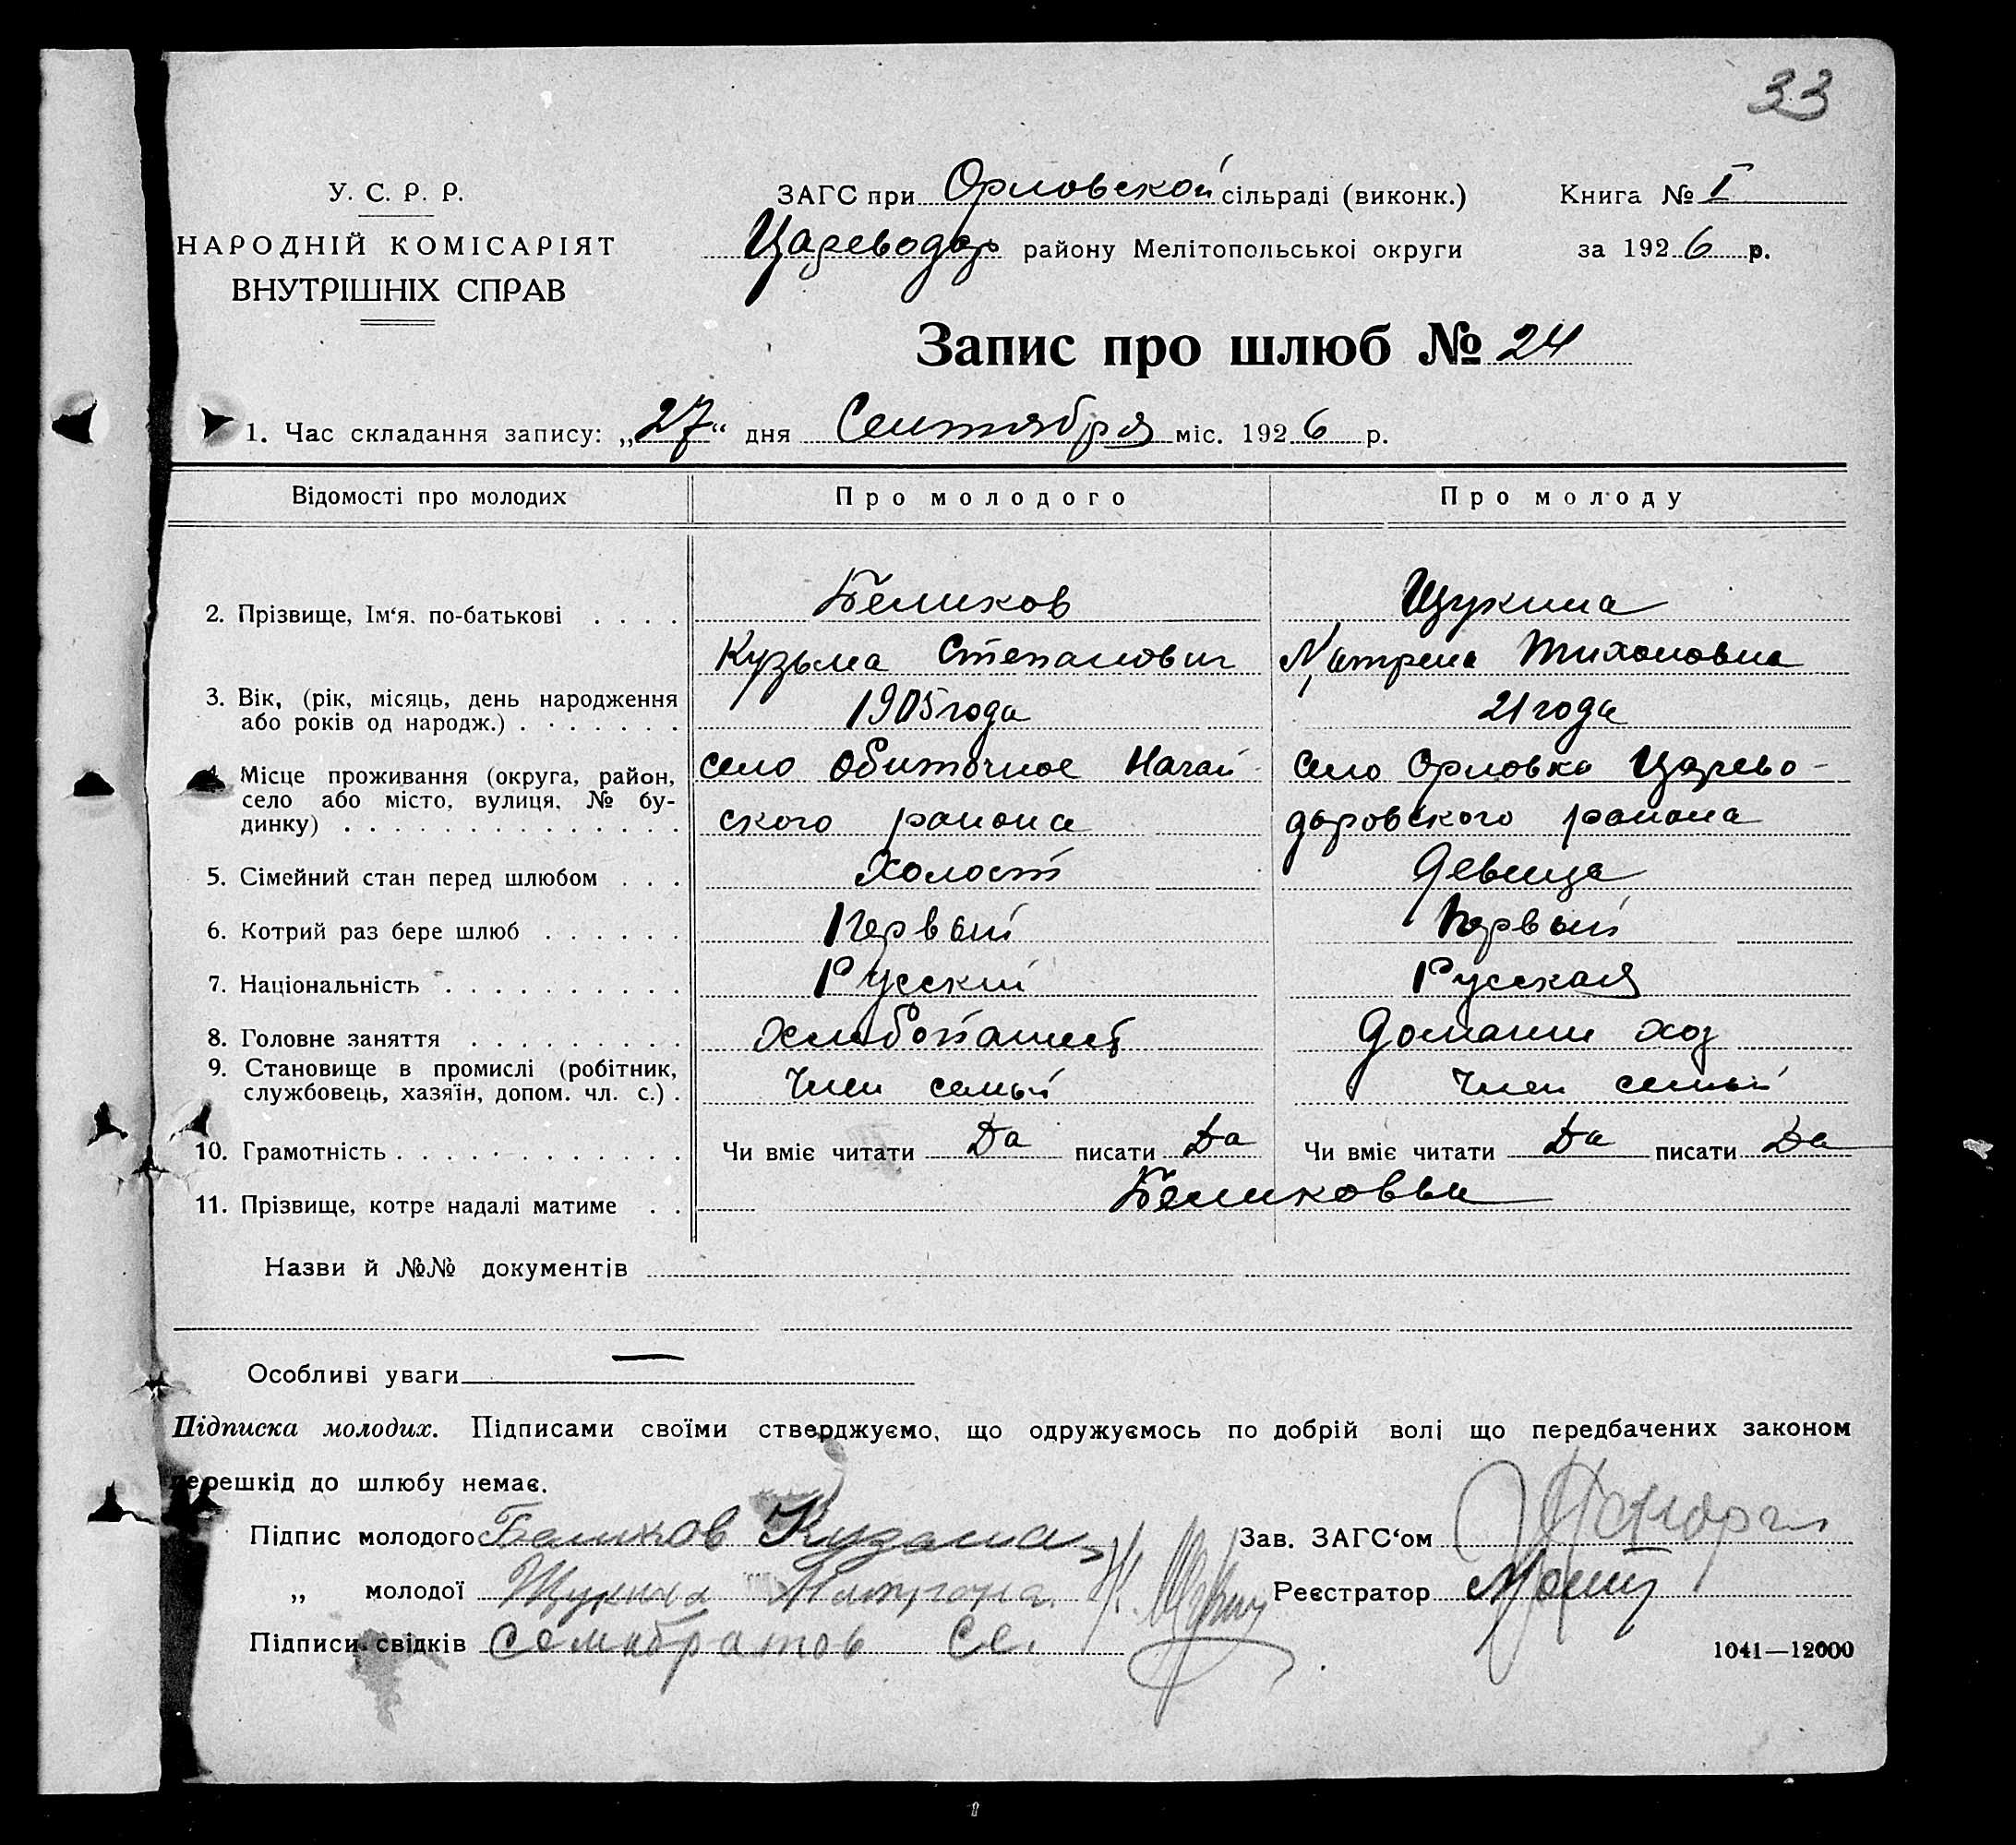 33
У. С. Р. Р.
НАРОДНІЙ КОМІСАРІЯТ
ВНУТРІШНІХ СПРАВ
ЗАГС при Орловской сільраді (виконк.)
Цареводар району Мелітопольської округи
Книга № I
за 1926 р.
Запис про шлюб № 24
1. Час складання запису: „27“ дня Сентября міс. 1926 р.
Відомості про молодих Про молодого Про молоду
2. Прізвище, Ім‘я. по-батькові . . . . Беликов Щукина
Кузьма Степанович Матрена Тихоновна
3. Вік, (рік, місяць, день народження
або років од народж.) . . . . . . . 1905 года 21 года
4. Місце проживання (округа, район, село Обиточное Нагай- село Орловка Царево-
село або місто, вулиця, № бу-
динку) . . . . . . . . . . . . . . ского района даровского района
5. Сімейний стан перед шлюбом . . . Холост Девица
6. Котрий раз бере шлюб . . . . . . Первый Первый
7. Національність . . . . . . . . . . Русский Русская
8. Головне заняття . . . . . . . . . Хлебопашец Домашн хоз
9. Становище в промислі (робітник,
службовець, хазяїн, допом. чл. с.) . Член семьи Член семьи
10. Грамотність . . . . . . . . . . . . Чи вміє читати Да писати Да Чи вміє читати Да писати Да
11. Прізвище, котре надалі матиме . . Беликовы
Назви й №№ документів
Особливі уваги —
Підписка молодих. Підписами своїми стверджуємо, що одружуємось по добрій волі що передбачених законом
перешкід до шлюбу немає.
Підпис молодого Беликов Кузьма
„ молодої Щукина
Підписи свідків
Зав. ЗАГС‘ом
Реєстратор
1041—12000